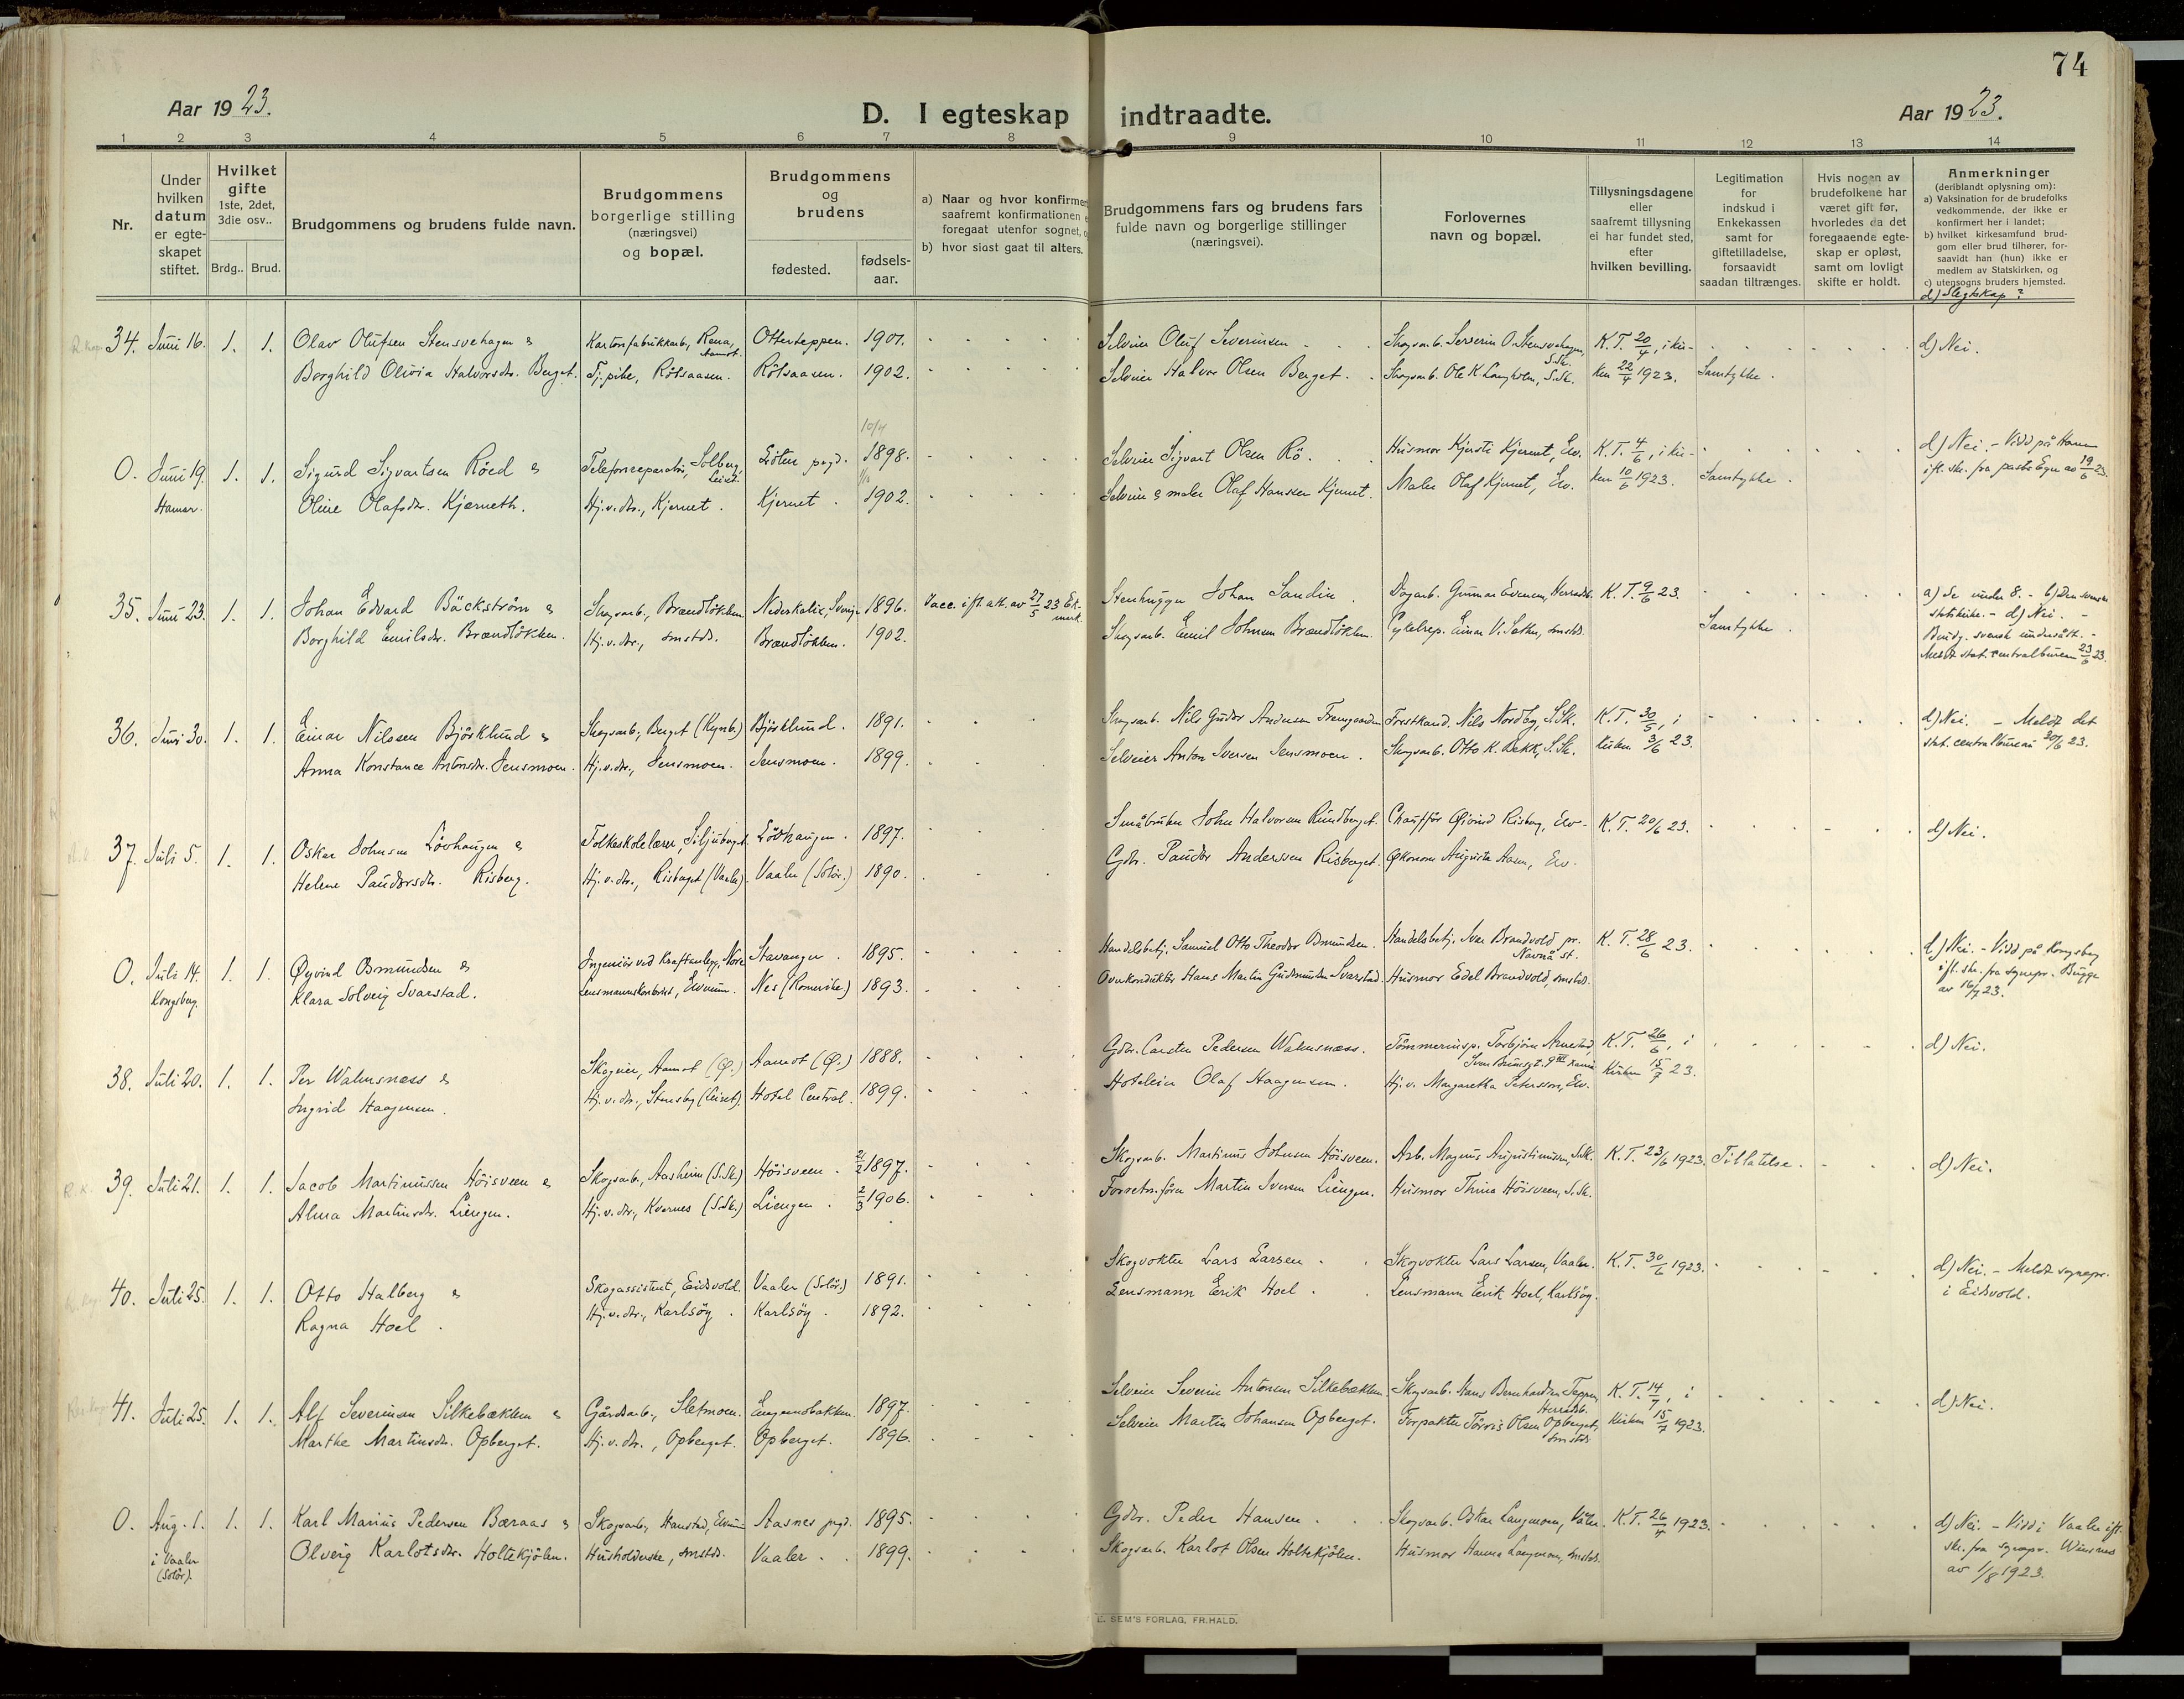 74
Aar 1923.
D. I egteskap indtraadte.
Aar 1923.
1 2 3 4 5 6 7 8 9 10 11 12 13 14
Nr.
Under hvilken datum er egte-skapet stiftet.
Hvilket gifte 1ste, 2det, 3die osv..
Brdg.. Brud.
Brudgommens og brudens fulde navn.
Brudgommens borgerlige stilling (næringsvei) og bopæl.
Brudgommens og brudens
fødested.
fødsels-aar.
a) Naar og hvor konfirmer
saafremt konfirmationen
foregaat utenfor sognet,
b) hvor sidst gaat til alters.
Brudgommens fars og brudens fars
fulde navn og borgerlige stillinger
(næringsvei).
Forlovernes
navn og bopæl.
Tillysningsdagene
eller
saafremt tillysning
ei har fundet sted,
efter
hvilken bevilling.
Legitimation
for
indskud i
Enkekassen
samt for
giftetilladelse,
forsaavidt
saadan tiltrænges.
Hvis nogen av
brudefolkene har
været gift før,
hvorledes da det
foregaaende egte-
skap er opløst,
samt om lovligt
skifte er holdt.
Anmerkninger
(deriblandt oplysning om):
a) Vaksination for de brudefolks
vedkommende, der ikke er
konfirmert her i landet;
b) hvilket kirkesamfund brud-
gom eller brud tilhører, for-
saavidt han (hun) ikke er
medlem av Statskirken, og
c) utensogns bruders hjemsted.
d) Slegtskap?
34. Juni 16. 1. 1. Olav Olufsen Stensvehagen & Kartonfabrikkarb., Rena, Aamot. Otterteppen. 1901. Selveier Oluf Severinsen K. T. 20/4, i kir- d) Nei.
Borghild Olivia Halvorsdr. Berget. Tj.pike, Rötsaasen. Rötsaasen. 1902. Selveier Halvor Olsen Berget. Skogsarb. Ole K. Langholm, S.Sk. ken 22/4 1923. Samtykke.
10/4
0. Juni 19. 1. 1. Sigurd Sigvartsen Röed & Telefonreparatör, Solberg, Leiret. Löten prgd. 1898. Selveier Sigvart Olsen Rö. Husmor Kjersti Kjernet, Elv. K. T. 4/6, i kir- d) Nei. - Viet på Hamar
Hamar. Oline Olafsdr. Kjerneth. Hj.v.dr., Kjernet. Kjernet. 1902. Selveier & maler Olaf Hanssen Kjernet. Maler Olaf Kjernet, Elv. ken 10/6 1923. Samtykke. ifl. skr. fra pastor Egge av 19/6 23.
35. Juni 23. 1. 1. Johan Edvard Bäckström & Skogsarb., Brændlökken Nederkalix, Sverige 1896. Vacc. ifl. att. av 27/5 23 Stenhugger Johan Sandin. Dagarb. Gunnar Evensen, Herredsb. K. T. 9/6 23. a) Se under 8. - b) Den svenske
Borghild Emilsdr. Brændlökken. Hj.v.dr., smstds. Brændlökken. 1902. Skogsarb. Emil Johnsen Brændlökken. Cykelrep. Einar V. Sæther, smstds. Samtykke. statskirke. - d) Nei. -
Brudg. svensk undersått. -
Meldt stat. centralbureau 23/6 23.
36. Juni 30. 1. 1. Einar Nilssen Björklund & Skogsarb., Berget (Kynb.) Björklund. 1891. Skogsarb. Nils Gudor Andersen Forstkand. Nils Nordby, S.Sk. K. T. 30/5, i d) Nei. - Meldt det
Anna Konstance Antonsdr. Jensmoen. Hj.v.dr., Jensmoen. Jensmoen. 1899. Selveier Anton Iversen Jensmoen. Skogsarb. Otto K. Bekk, S.Sk. kirken 3/6 23. stat. centralbureau 30/6 23.
37. Juli 5. 1. 1. Oskar Johnsen Lövhaugen & Folkeskolelærer, Siljuberget Lövhaugen. 1897. Småbruker John Halvorsen Rundberget. Chauffør Øivind Risberg, Elv. K. T. 20/6 23. d) Nei.
Helene Paudersdr. Risberg. Hj.v.dr., Risberget (Vaaler). Vaaler (Solör.) 1890. Gdbr. Pauder Anderssen Risberget. Økonom Augusta Aasen, Elv.
0. Juli 14. 1. 1. Øyvind Osmundsen & Ingeniör ved Kraftanlegg, Nore Stavanger. 1895. Handelsbetj. Samuel Otto Theodor Osmundsen. Handelsbetj. Ivar Brandvold pr. Navnå st. K. T. 28/6 23. d) Nei. - Viet på Kongsberg
Kongsberg. Klara Solveig Svarstad. Lensmannskontorist, Elverum. Nes (Romerike) 1893. Overkonduktör Hans Martin Gudmundsen Svarstad. Husmor Edel Brandvold, smstds. ifl. skr. fra sognepr. Brügge
av 16/7 23.
38. Juli 20. 1. 1. Per Walmsness & Skogeier, Aamot (Ø.) Aamot (Ø.) 1888. Gdbr. Carsten Pedersen Walmsness. Tömmerinsp. Torbjörn Arnestad, K. T. 26/6, i d) Nei.
Ingrid Haagensen. Hj.v.dr., Stensby (Leiret). Hotel Central. 1899. Hoteleier Olaf Haagensen. Hj.v. Margaretha Petersson, Elv. kirken 15/7 23.
39. Juli 21. 1. 1. Jacob Martinussen Höisveen & Skogsarb., Aasheim (S.Sk.) Höisveen. 21/2 1897. Skogsarb. Martinus Johnsen Höisveen. Arb. Magnus Augustinussen, S.Sk. K. T. 23/6 1923. Tillatelse. d) Nei.
Alma Martinsdr. Liengen. Hj.v.dr., Kvernes (S.Sk.) Liengen. 2/3 1906. Martin Iversen Liengen. Husmor Thina Höisveen, S.Sk.
40. Juli 25. 1. 1. Otto Halberg & Skogassistent, Eidsvold. Vaaler (Solör.) 1891. Skogvokter Lars Larsen. Skogvokter Lars Larsen, Vaaler. K. T. 30/6 1923. d) Nei. - Meldt sognepr.
Ragna Hoel. Hj.v.dr., Karlsöy. Karlsöy. 1892. Lensmann Erik Hoel. Lensmann Erik Hoel, Karlsöy. i Eidsvold.
41. Juli 25. 1. 1. Alf Severinsen Silkebækken & Gårdsarb., Sletmoen. Engernesbakken. 1897. Selveier Severin Antonsen Silkebækken. Skogsarb. Hans Bernhardsen Teppen, Herredsb. K. T. 14/7, i d) Nei.
Marthe Martinsdr. Opberget. Hj.v.dr., Opberget. Opberget. 1896. Selveier Martin Johansen Opberget. Forpakter Törris Olsen Opberget, smstds. kirken 15/7 1923.
0. Aug. 1. 1. 1. Karl Marius Pedersen Bæraas & Skogsarb., Hanstad, Elverum Aasnes prgd. 1895. Gdbr. Peder Hansen. Skogsarb. Oskar Langmoen, Våler. K. T. 26/4 1923. d) Nei. - Viet i Vaaler ifl.
i Vaaler (Solör). Olveig Karlotsdr. Holtekjölen. Husholderske, smstds. Vaaler. 1899. Skogsarb. Karlot Olsen Holtekjölen. Husmor Hanna Langmoen, smstds. skr. fra sognepr. Winsnes
av 1/8 1923.
E. SEM'S FORLAG, FR.HALD.